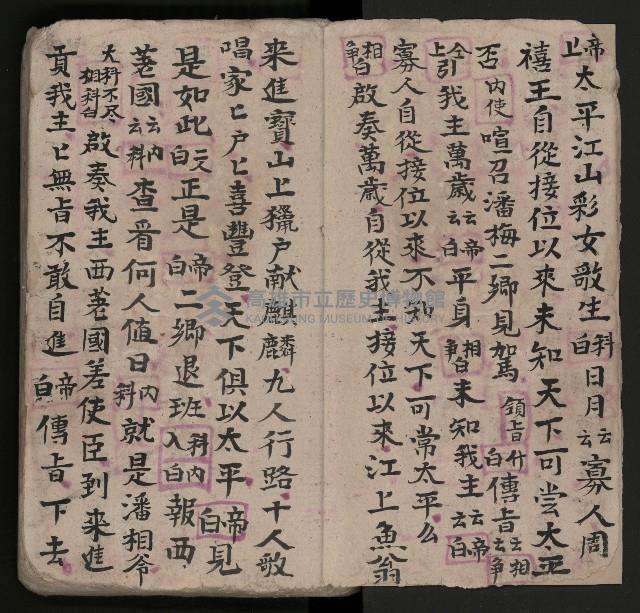 帝上太平江山彩女歌生科白日月云云寡人周
禧王自從接位以來未知天下可尝太平
否内使喧召潘梅二卿見駕領旨什白傳旨云云相争
仝上引我主萬歲云云帝白平身相争白未知我主云云帝白
寡人自從接位以來不知天下可常太平么
相争白啟奏萬歲自從我主接位以來江上魚翁
来進寶山上獵户献麒麟九人行路十人歌
唱家匕户匕喜豐登天下俱以太平帝白見
是如此文白正是帝白二卿退班入科内白報西
茗國云云内科查看何人值日内科就是潘相爷
大科不尽相科白啟奏我主西茗國差使臣到來進
貢我主匕無旨不敢自進帝白傳旨下去
高雄市立歷史博物館
KAOHSIUNG MUSEUM OF HISTORY